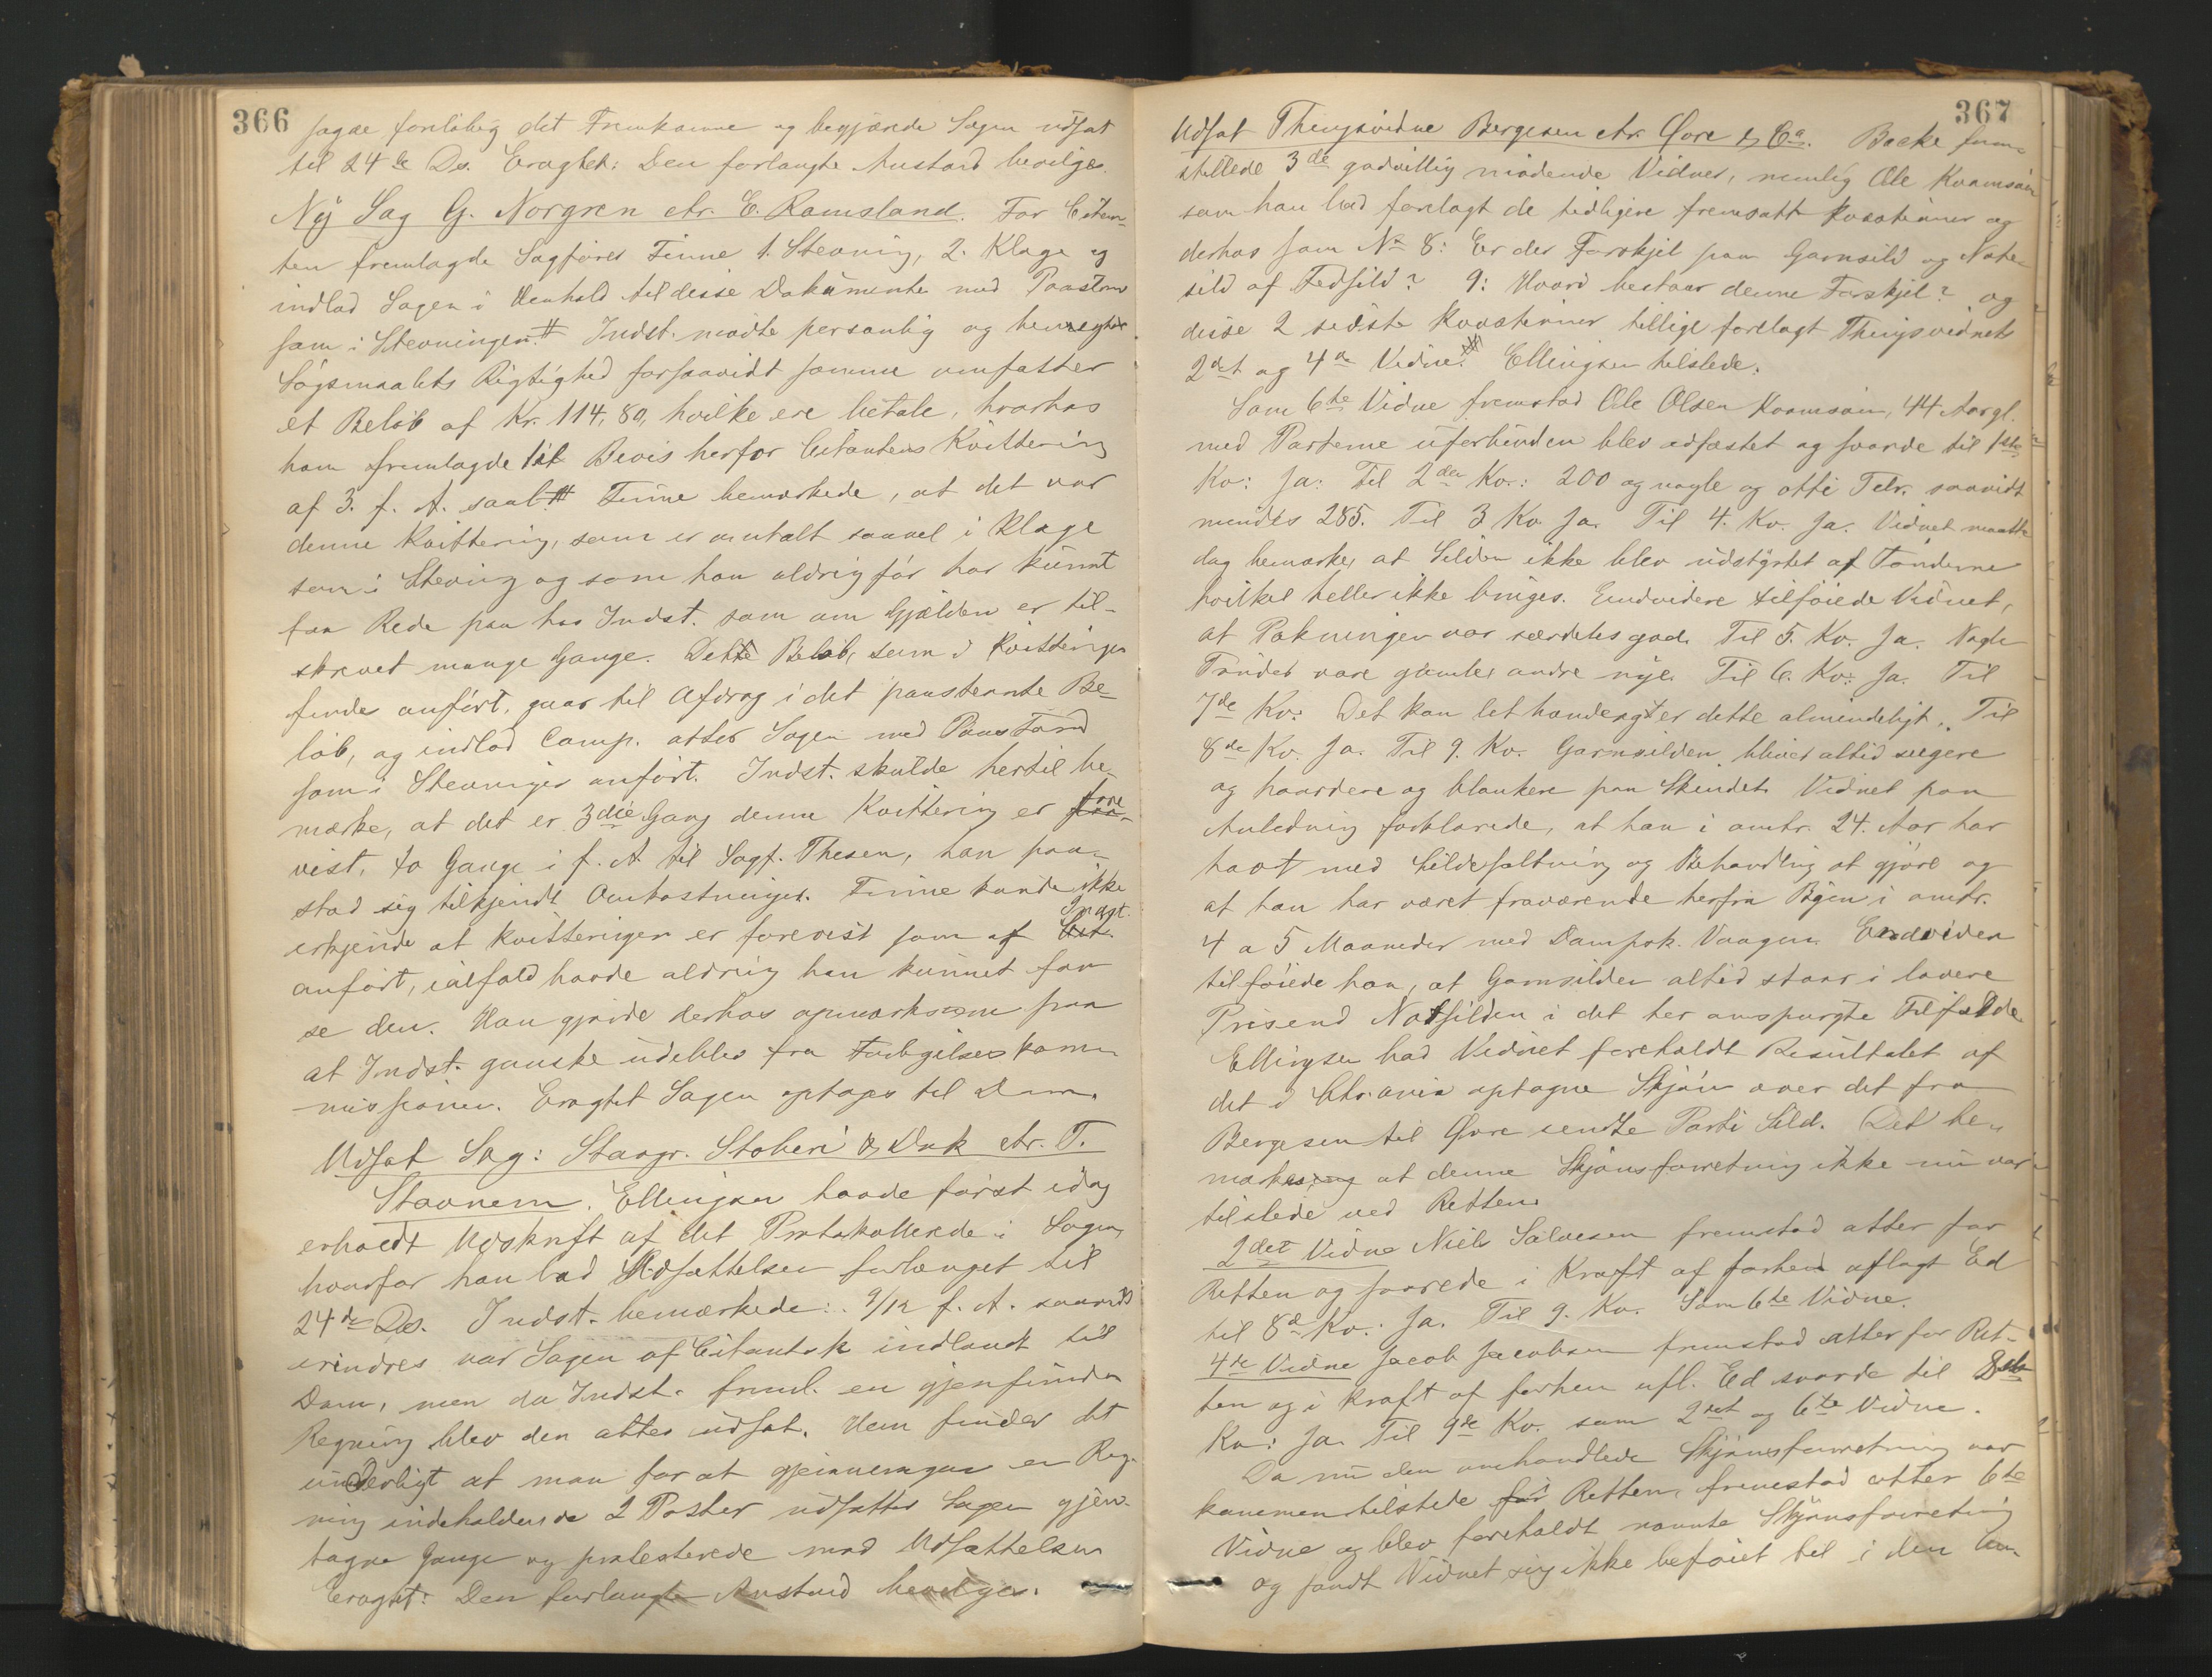 366
sagde foreløbig det Fremkomne og begjærede Sagen udsat
til 24de Ds. Eragtet: Den forlangte Anstand bevilges.
Ny Sag G. Norgren ctr. E. Ramsland. For Citan-
ten fremlagde Sagfører Finne 1. Stevning, 2. Klage og
indlod Sagen i Henhold til disse Dokumenter med Paastand
som i Stevningen # Indst. mødte personlig og benegtede
Søgsmaalets Rigtighed forsaavidt samme omfatter
et Beløb af Kr. 114,80, hvilke ere betalt, hvorhos
han fremlagde til Bevis herfor Citantens Kvittering
af 3. f. A. saal. # Finne bemærkede, at det var
denne Kvittering, som er omtalt saavel i Klage
som i Stevning og som han aldrig før har kunnet
faa Rede paa hos Indst. som om Gjælden er til-
skrevet mange Gange. Dette Beløb, som i Kvitteringen
findes anført, gaar til Afdrag i det paastevnte Be-
løb, og indlod Comp. atter Sagen med Paastand
som i Stevningen anført. Indst. skulde hertil be-
mærke, at det er 3die Gang denne Kvittering er fore-
vist, to Gange i f. A. til Sagf. Thesen, han paa-
stod sig tilkjendt Omkostninger. Finne kunde ikke
erkjende at Kvitteringen er forevist som af Indst.
anført, ialfald havde aldrig han kunnet faa
se den. Han gjorde derhos opmærksom paa
at Indst. ganske udeblev fra Forligelseskom-
missionen. Eragtet Sagen optages til Dom.
Udsat Sag: Stavgr. Støberi & Dok ctr. T.
Stavnem. Ellingsen havde først idag
erholdt Udskrift af det Protokollerede i Sagen,
hvorfor han bad Udsættelsen forlænget til
24de Ds. Indst. bemærkede: 9/12 f. A. saavidt
erindres var Sagen af Citantsk indladt til
Dom, men da Indst. freml. en gjenfunden
Regning blev den atter udsat. Han finder det
underligt at man for at gjennemgaa en Reg-
ning indeholdende 2 Poster udsætter Sagen gjen-
tagne Gange og protesterede mod Udsættelsen
Eragtet: Den forlangte Anstand bevilges.
367
Udsat Thingsvidne Bergesen ctr. Øvre & Co. Backe frem-
stillede 3de godvillig mødende Vidner, nemlig Ole Kvamsøen
som han bad forelagt de tidligere fremsatte Kvæstioner og
derhos som No 8: Er der Forskjel paa Garnsild og Note-
sild af Fedsild? 9: Hvori bestaar denne Forskjel? og
disse 2 sidste Kvæstioner tillige forelagt Thingsvidnets
2det og 4de Vidne. # Ellingsen tilstede.
Som 6te Vidne fremstod Ole Olsen Kvamsøen, 44 Aar gl.
med Parterne uforbunden blev edfæstet og svarede til 1ste
Kv: Ja. Til 2den Kv.: 200 og nogle og otti Tdr. saavidt
mindes 285. Til 3 Kv. Ja. Til 4. Kv. Ja. Vidnet maatte
dog bemærke, at Silden ikke blev udstyrtet af Tønderne
hvilket heller ikke bruges. Endvidere tilføiede Vidnet,
at Pakningen var særdeles god. Til 5. Kv. Ja. Nogle
Tønder vare gamle, andre nye. Til 6. Kv: Ja. Til
7de Kv: Det kan let hænde er dette almindeligt. Til
8de Kv. Ja. Til 9. Kv. Garnsilden bliver altid seigere
og haardere og blankere paa Skindet. Vidnet paa
Anledning forklarede, at han i omtr. 24. Aar har
havt med Sildesaltning og Behandling at gjøre og
at han har været fraværende herfra Byen i omtr.
4 a 5 Maaneder med Dampsk. Vaagen. Endvidere
tilføiede han, at Garnsilden altid staar i lavere
Pris end Notsilden i det her omspurgte Tilfælde.
Ellingsen bad Vidnet foreholdt Resultatet af
det i Chr.ania optagne Skjøn over det fra
Bergesen til Øvre sendte Parti Sild. Det be-
mærkes at denne Skjønsforretning ikke nu var
tilstede ved Retten.
2det Vidne Niels Salvesen fremstod atter for
Retten og svarede i Kraft af forhen aflagt Ed
til 8de Kv.: Ja. Til 9. Kv. Som 6te Vidne.
4de Vidne Jacob Jacobsen fremstod atter for Ret-
ten og i Kraft af forhen afl. Ed svarede til 8de
Kv: Ja. Til 9de Kv. som 2det og 6te Vidne.
Da nu den omhandlede Skjønsforretning var
kommen tilstede for Retten, fremstod atter 6te
Vidne og blev foreholdt nævnte Skjønsforretning
og fandt Vidnet sig ikke beføiet til i den An-